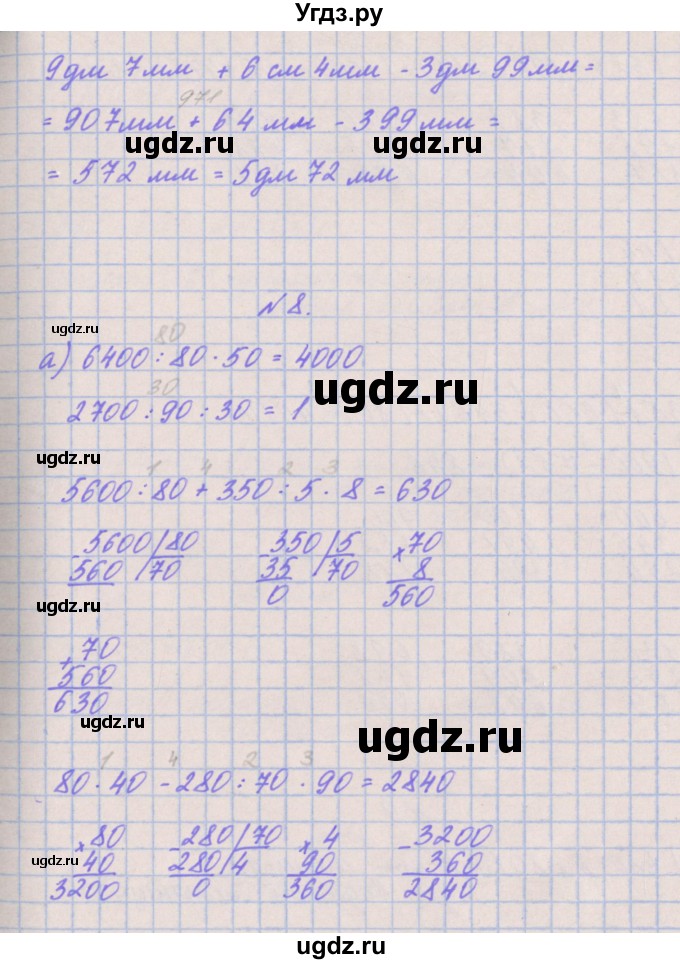 Угдз.ру
9дм 7мм + 6 см 4мм - 3дм 99мм =
971
= 907мм + 64 мм - 399мм =
ugdz.ru ugdz.ru
= 572 мм = 5дм 72 мм
№8.
ugdz.ru
80
а) 6400 : 80 · 50 = 4000
ugdz.ru
30
2700 : 90 : 30 = 1
ugdz.ru
1 4 2 3
5600 : 80 + 350 : 5 · 8 = 630
- 5600 | 80 - 350 | 5 × 70
560 | 70 35 | 70 8
0 560
ugdz.ru
+ 70
560
630
ugdz.ru
ugdz.ru
1 4 2 3
80 · 40 - 280 : 70 · 90 = 2840
× 80 - 280 | 70 × 4 - 3200
ugdz.ru
40 280 | 4 90 360
3200 0 360 2840
ugdz.ru ugdz.ru
ugdz.ru